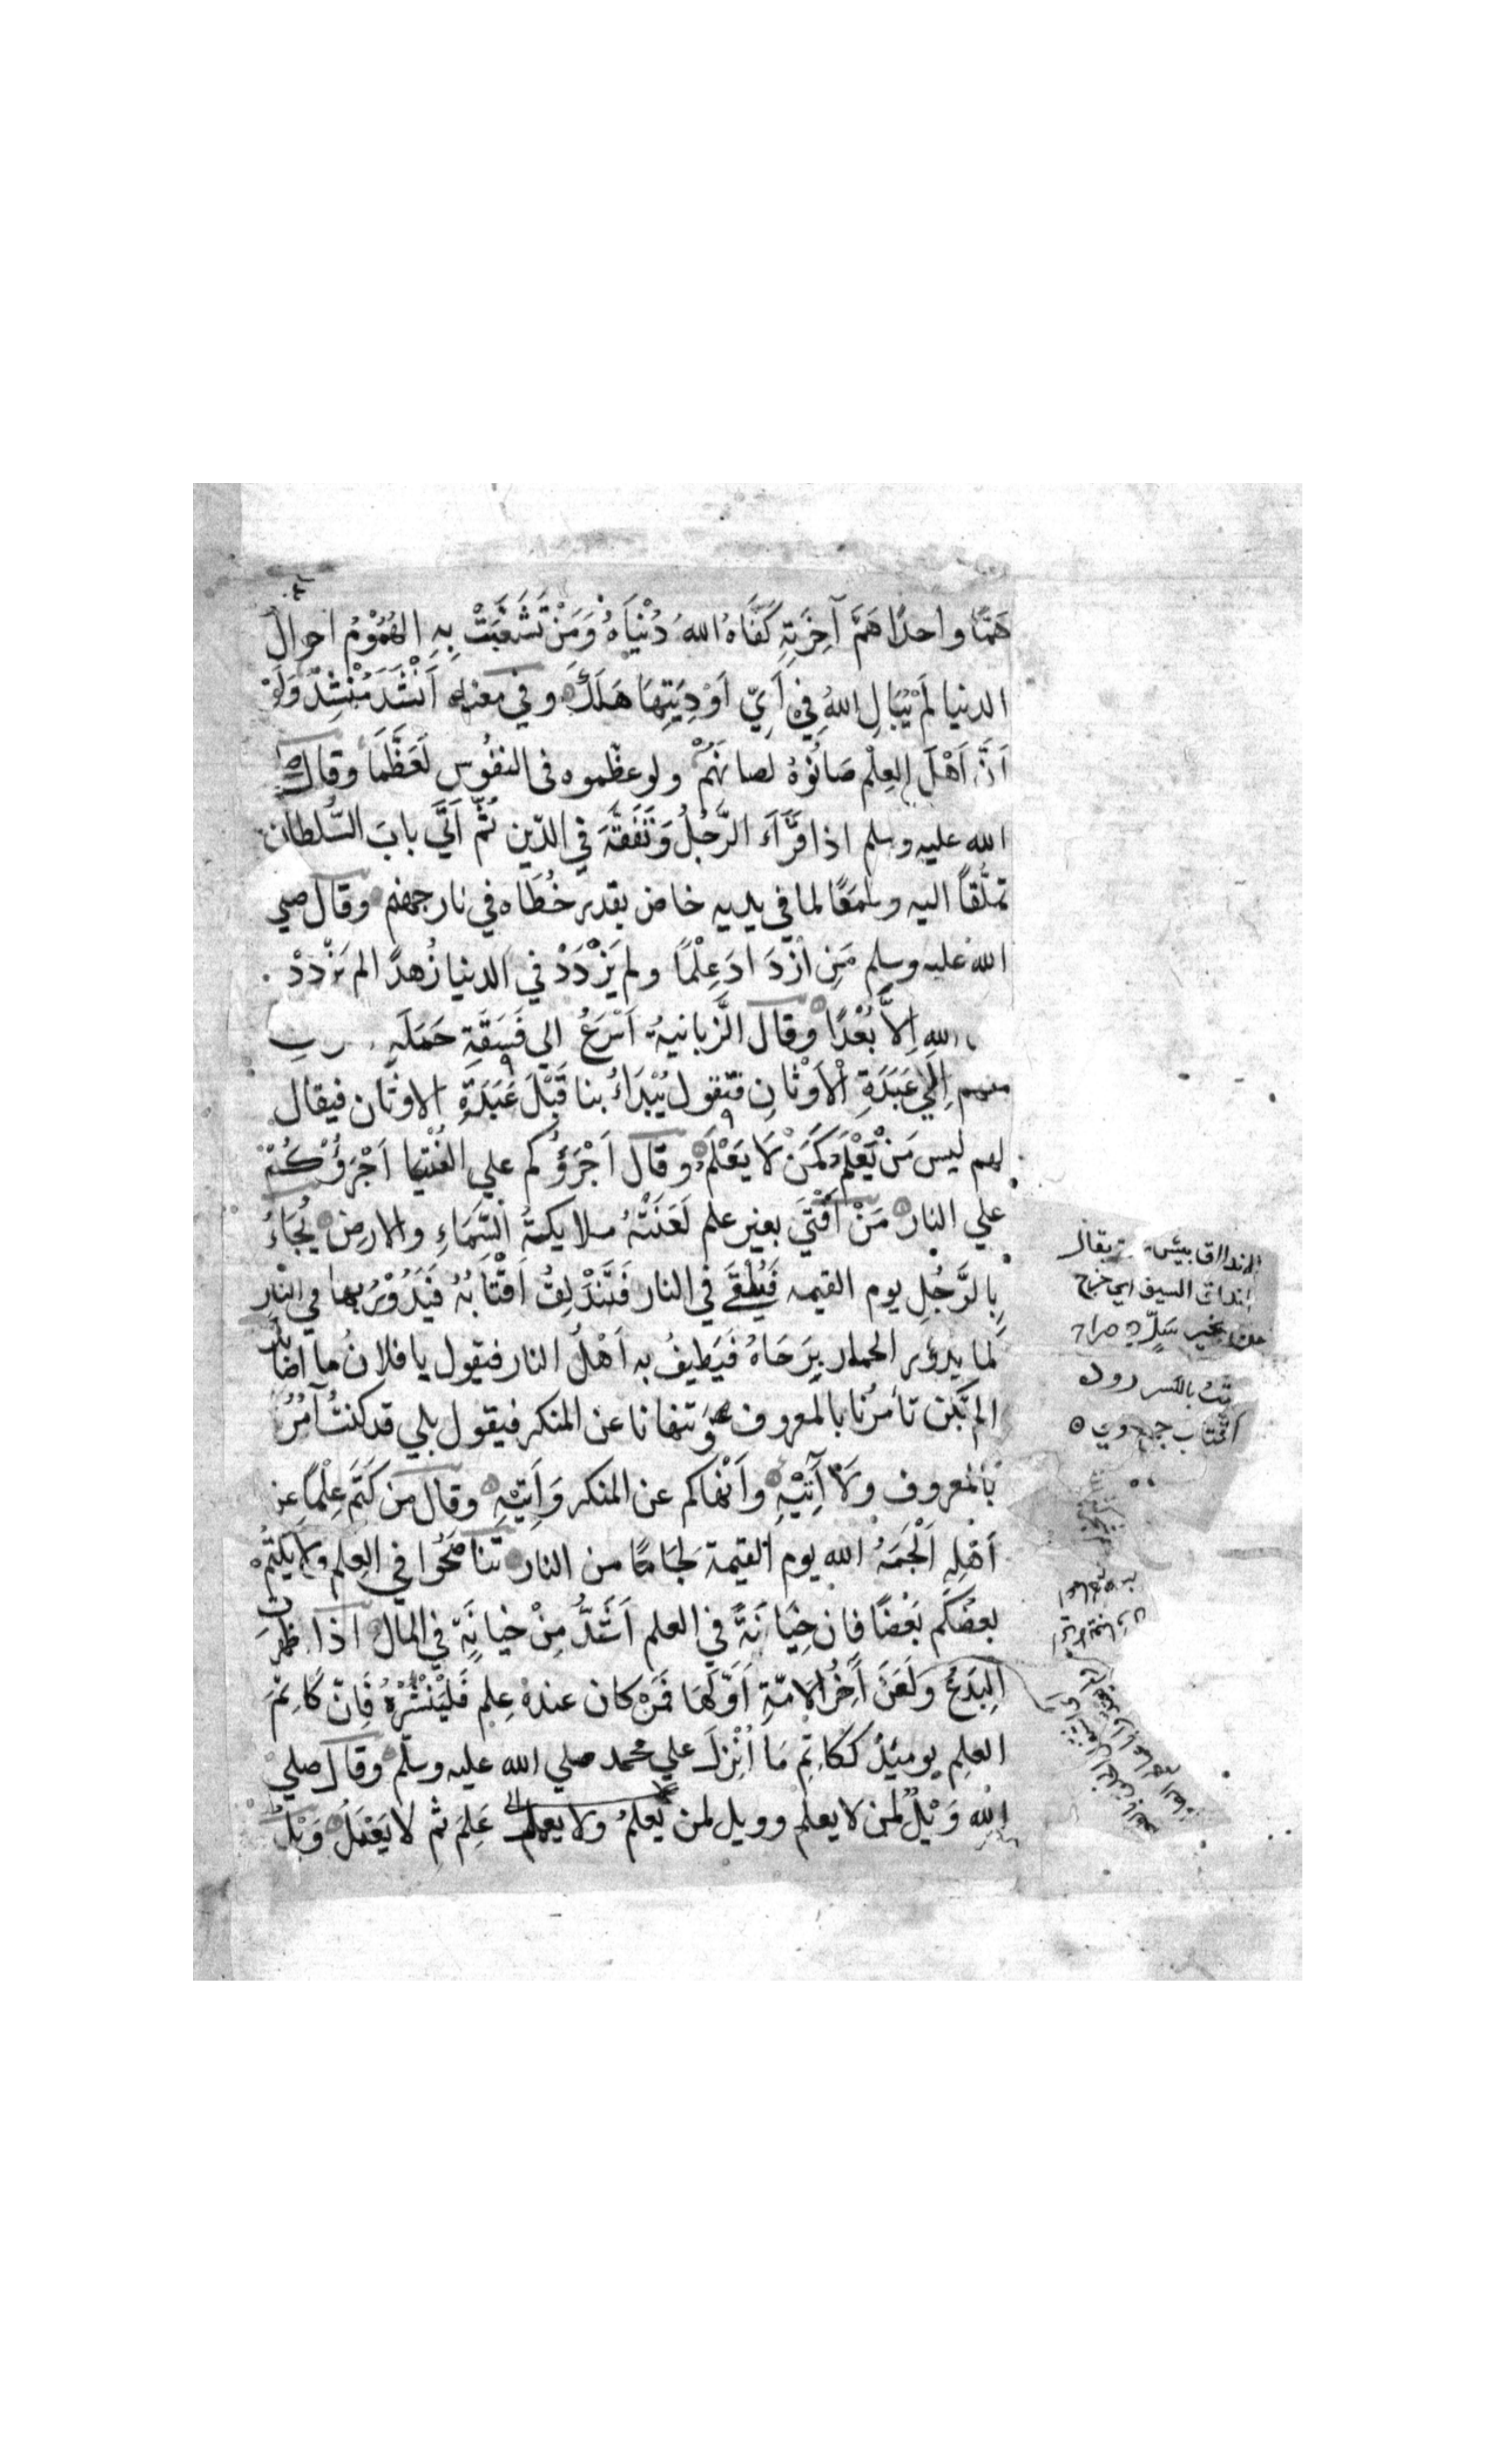 هَمًّا واحدًا هَمَّ آخِرَتِهِ كَفَاهُ اللهُ دُنْيَاهُ وَمَنْ تَشَعَّبَتْ بِهِ الهُمُوْمُ احوالَ
الدنيا لَمْ يُبَالِ اللهُ فِيْ اَيِّ اَوْدِيَتِهَا هَلَكَ وفي معناه اَنْشَدَ مُنْشِدٌ وَلَوْ
اَنَّ اَهْلَ العِلْمِ صَانُوْهُ لصانَهُمْ ولو عظّموه فى النفُوسِ لَعَظَّمَا وقال صلى
الله عليه وسلم اذا قَرَاَ الرَّجُلُ وَتَفَقَّهَ فِي الدّين ثُمَّ اَتَى بابَ السُّلطان
تملُّقاً اليه وطمَعًا لما في يديه خاض بقدر خُطَاه في نار جهنم وقال صلي
الله عليه وسلم مَنِ ازْدَادَ عِلْمًا ولم يَزْدَدْ في الدنيا زُهدًا لم يَزْدَدْ
الله اِلاَّ بُعْدًا وقال الزَّبانيةُ اَسْرَعُ الي فَسَقَةِ حَمَلَةِ
منهم اِلَي عَبَدَةِ الْاَوْثَانِ فتقول يُبْدَاُ بنا قَبْلَ عَبَدَةِ الاوثان فيقال
لهم ليس مَنْ يَعْلَمُ كَمَنْ لَا يَعْلَمُ وقال اَجْرَؤُكم علي الفُتْيَا اَجْرَؤُكُمْ
علي النار مَنْ اَفْتَي بغير علم لَعَنَتْهُ ملايكةُ السَّمَاءِ والارض يُجَاءُ
بِالرَّجُلِ يوم القيمه فَيُلْقَى في النار فَتَنْدَلِقُ اَقْتَابُهُ فَيَدُوْرُ بها في النار
كما يدور الحمار بِرَحَاهُ فَيَطِيفُ به اَهْلُ النار فيقول يا فلانُ ما اصابَكَ
الم تَكُنْ تأمرُنا بالمعروف وَتنهانا عن المنكر فيقول بلي قد كنتُ آمُرُ
بالمعروف ولَا آتِيْهِ وَاَنْهَاكم عن المنكر وَآتِيْهِ وقال مَن كَتَمَ عِلْمًا عن
اَهْلِهِ اَلْجَمَهُ الله يوم القيمة لِجَامًا من النار تناصَحُوا في العِلم ولا يكتُمْ
بعضُكم بَعْضًا فان خِيَانَةً في العلم اَشَدُّ مِنْ خيانَةٍ فِي المالِ اذا ظهرت
البِدَعُ وَلَعَنَ آخِرُ الامّةِ اَوَّلَهَا فَمَنْ كان عندهُ عِلم فَلْيَنْشُرْهُ فَاِنَّ كَاتِمَ
العلم يوميذٍ كَكَاتِمِ مَا اُنْزِلَ علي محمد صلي الله عليه وسلّم وقال صلي
الله وَيْلٌ لمن لا يعلم وويل لمن يعلمُ ولا يعمل عَلِمَ ثم لا يَعْمَلُ وَيْلٌ
الاندلاق يقال
اندلق السيف اي خرج
بغير سَلٍّ
بالكسر
اقتاب